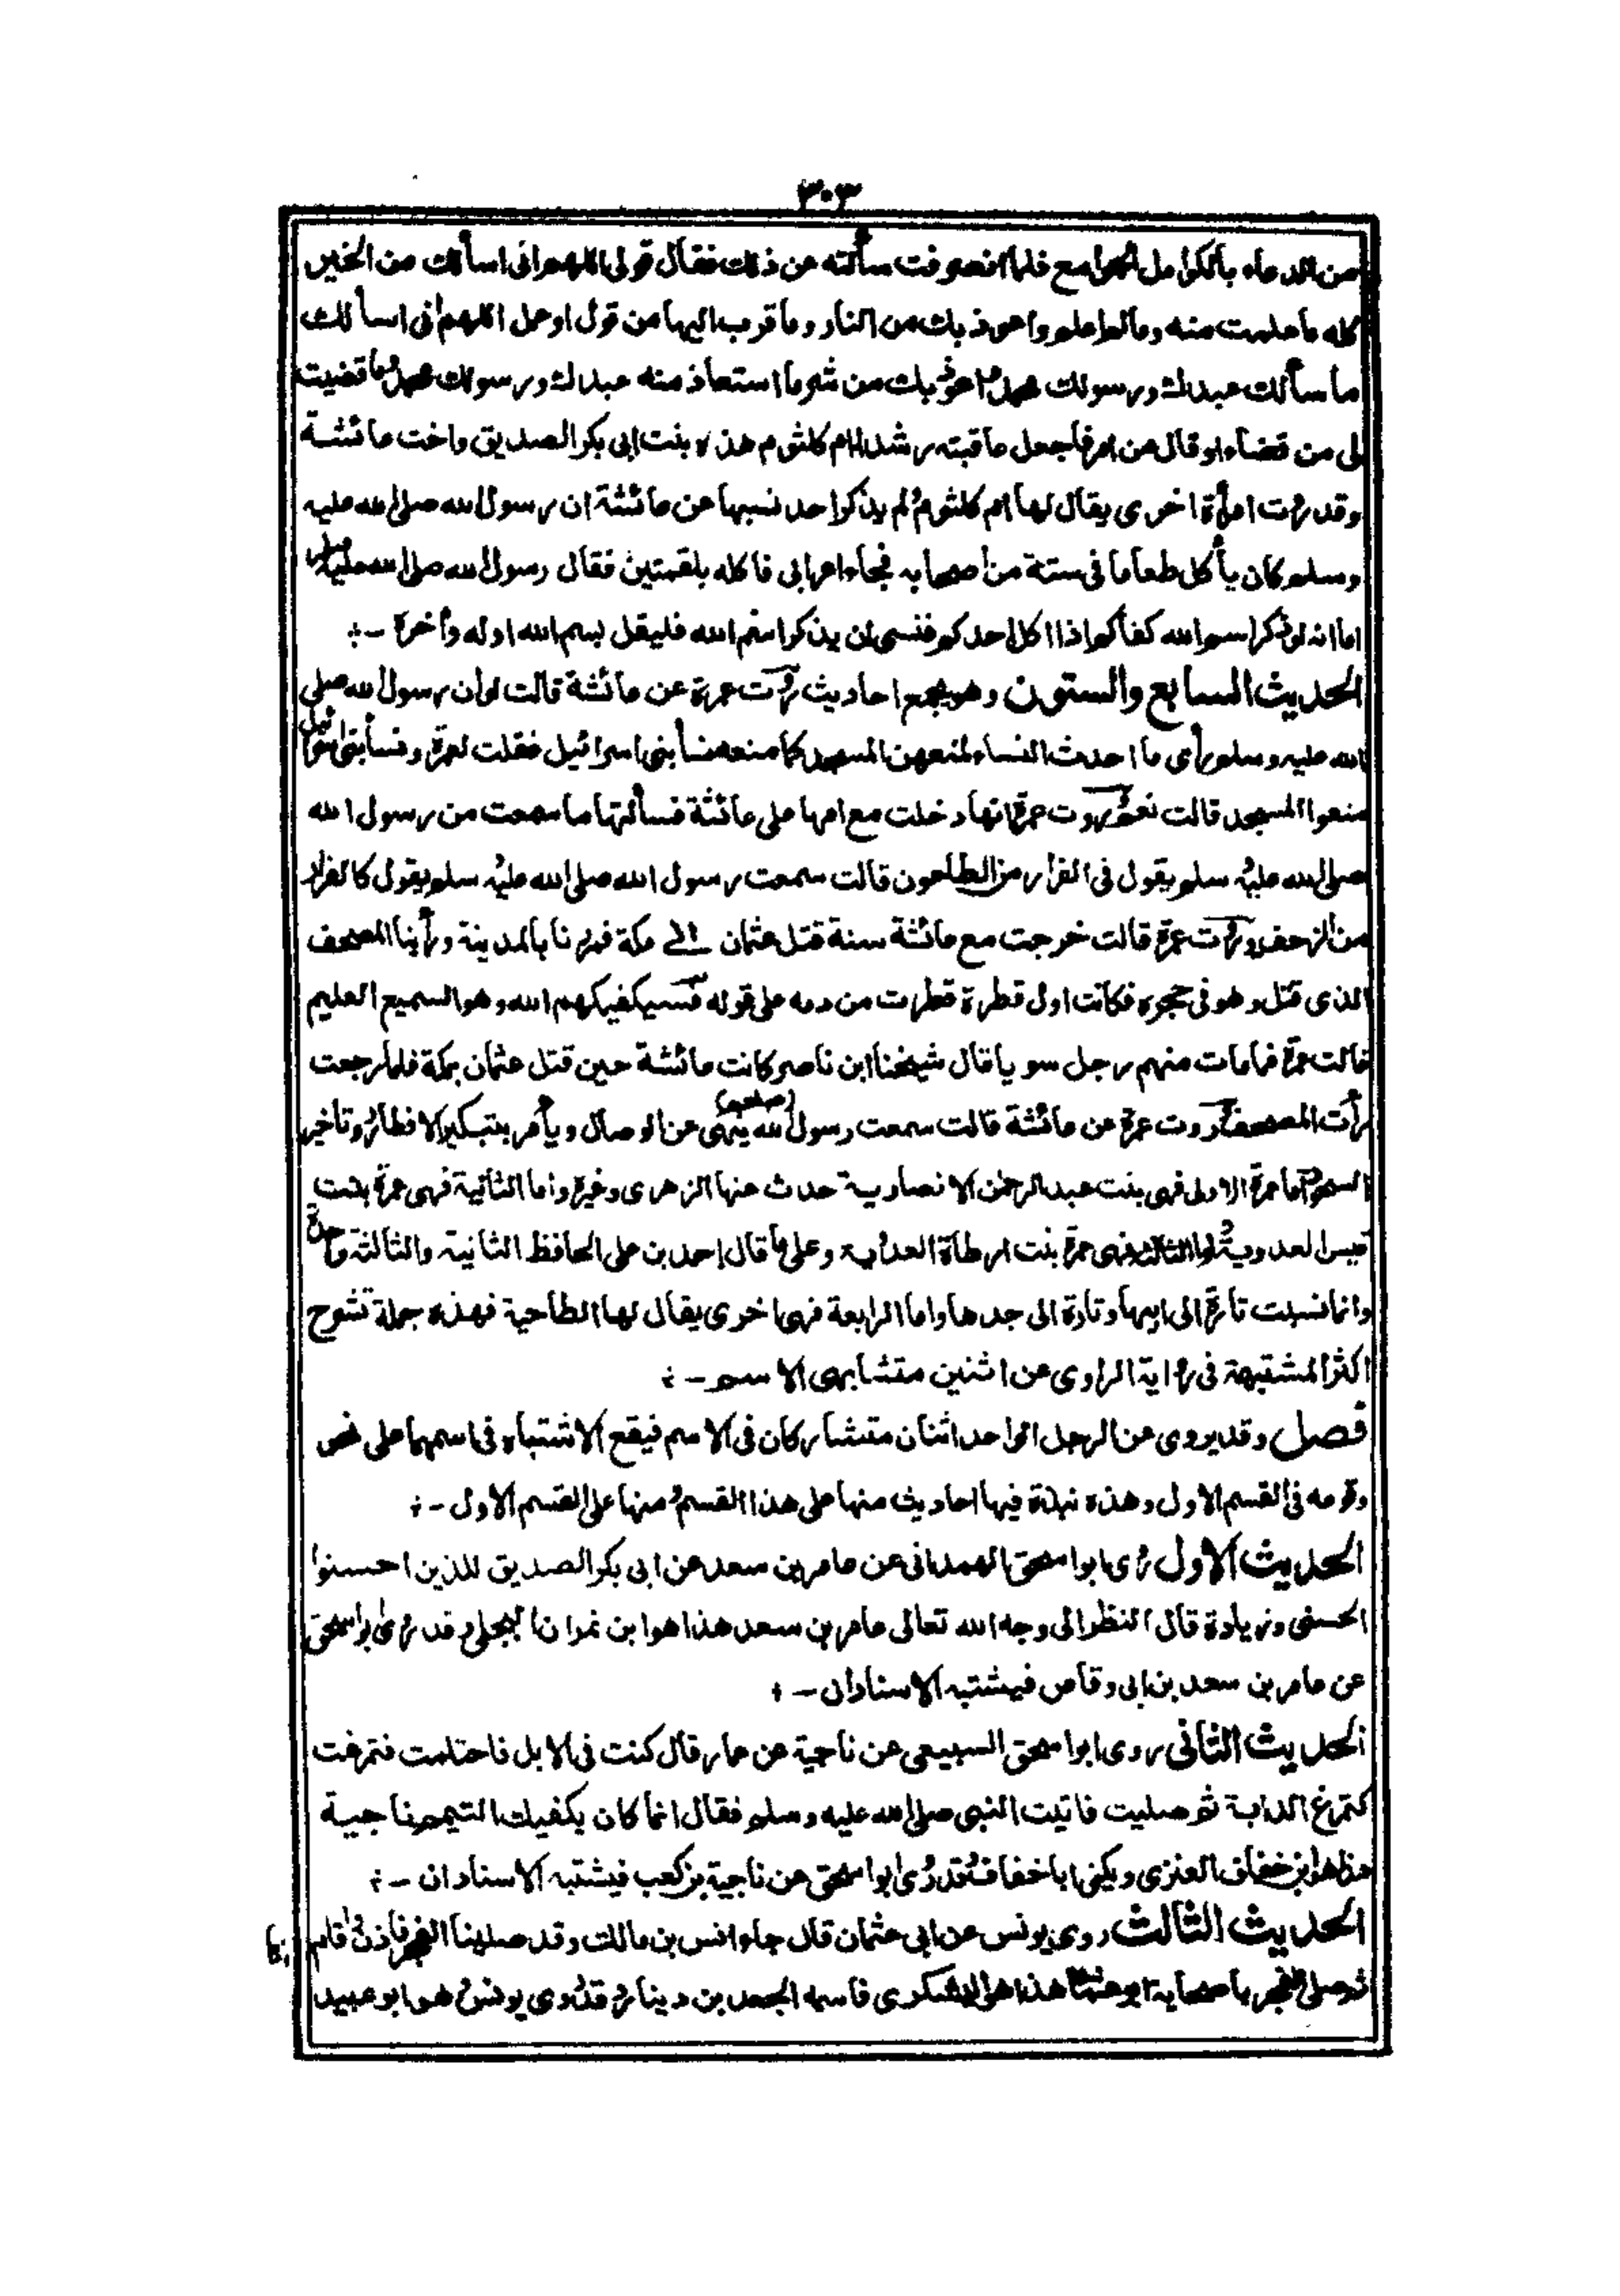 ٣٠٣
من الدعاء بالكوامل الجوامع فلما انصرفت سألته عن ذلك فقال قولى اللهم انى اسألك من الخير
كله ما علمت منه وما لم اعلم واعوذ بك من النار وما قرب اليها من قول او عمل اللهم انى اسألك
ما سألك عبدك ورسولك محمد واعوذ بك من شر ما استعاذ منه عبدك ورسولك محمد وما قضيت
لى من قضاء او قال من امر فاجعل عاقبته رشدا ام كلثوم هذه بنت ابى بكر الصديق واخت عائشة
وقد روت امرأة اخرى يقال لها ام كلثوم لم يذكر احد نسبها عن عائشة ان رسول الله صلى الله عليه
وسلم كان يأكل طعاما فى ستة من اصحابه فجاء اعرابى فاكله بلقمتين فقال رسول الله صلى الله عليه وسلم
اما انه لو ذكر اسم الله كفاكم اذا اكل احدكم فنسى ان يذكر اسم الله فليقل بسم الله اوله وأخره -
الحديث السابع والستون وهو يجمع احاديث روت عمرة عن عائشة قالت لو ان رسول الله صلى
الله عليه وسلم رأى ما احدث النساء لمنعهن المسجد كما منعه نسأ بنى اسرائيل فقلت لعمرة ونسأ بنى اسرائيل
منعوا المسجد قالت نعم وروت عمرة انها دخلت مع امها على عائشة فسألتها ما سمعت من رسول الله
صلى الله عليه وسلم يقول فى الفرار من الطاعون قالت سمعت رسول الله صلى الله عليه وسلم يقول كالفرار
من الزحف وروت عمرة قالت خرجت مع عائشة سنة قتل عثمان الى مكة فمررنا بالمدينة ورأينا المصحف
الذى قتل وهو فى حجره فكانت اول قطرة قطرت من دمه على قوله فسيكفيكهم الله وهو السميع العليم
قالت عمرة فما مات منهم رجل سويا قال شيخنا ابن ناصر كانت عائشة حين قتل عثمان بمكة فلما رجعت
رأت المصحف وروت عمرة عن عائشة قالت سمعت رسول الله (صلعم) ينهى عن الوصال ويأمر بتبكير الافطار وتاخير
السحور اما عمرة الاولى فهى بنت عبد الرحمن الانصارية حدث عنها الزهرى وغيره واما الثانية فهى عمرة بنت
قيس العدوية واما الثالثة فهى عمرة بنت ارطاة العدوية وعلى ما قال احمد بن على الحافظ الثانية والثالثة واحدة
وانما نسبت تارة الى ابيها وتارة الى جدها واما الرابعة فهى اخرى يقال لها الطاحية فهذه جملة تشرح
اكثر المشتبهة فى رواية الراوى عن اثنين متشابهى الاسم -
فصل وقد يروى عن الرجل الواحد اثنان متشاركان فى الاسم فيقع الاشتباه فى اسمهما على نحو
وقوعه فى القسم الاول وهذه نبذة فيها احاديث منها على هذا القسم ومنها على القسم الاول -
الحديث الاول روى ابو اسحق الهمدانى عن عامر بن سعد عن ابى بكر الصديق للذين احسنوا
الحسنى وزيادة قال النظر الى وجه الله تعالى عامر بن سعد هذا هو ابن نمران البجلى وقد روى ابو اسحق
عن عامر بن سعد بن ابى وقاص فيشتبه الاسنادان -
الحديث الثانى روى ابو اسحق السبيعى عن ناجية عن عمار قال كنت فى الابل فاحتلمت فتمرغت
كتمرغ الدابة ثم صليت فاتيت النبى صلى الله عليه وسلم فقال انما كان يكفيك التيمم ناجية
هذا هو ابن خفاف العنزى ويكنى ابا خفاف وقد روى ابو اسحق عن ناجية بن كعب فيشتبه الاسنادان -
الحديث الثالث روى يونس عن ابى عثمان قال جاء انس بن مالك وقد صلينا الفجر فاذن واقام
ثم صلى الفجر باصحابه ابو عثمان هذا هو اليشكرى فاسمه الجعد بن دينار وقد روى يونس هو ابو عبيد